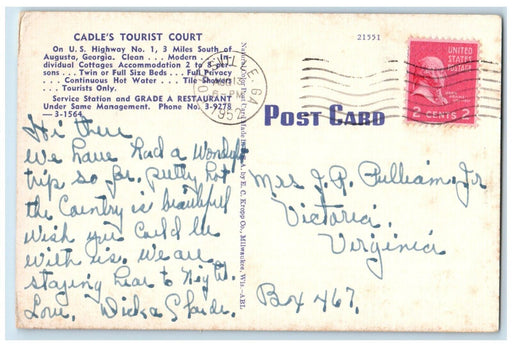 CADLE'S TOURIST COURT
On U.S. Highway No. 1, 3 Miles South of
Augusta, Georgia. Clean . . . Modern . . . In-
dividual Cottages Accommodation 2 to 8 per-
sons . . . Twin or Full Size Beds . . . Full Privacy
. . . Continuous Hot Water . . . Tile Showers
. . . Tourists Only.
Service Station and GRADE A RESTAURANT
Under Same Management. Phone No. 3-9278
—3-1564.
Hi there
We have had a Wonderful
trip so far. pretty hot
the Country is beautiful
Wish you could be
with us. We are
staying hear to Night.
Love,
E. C. Kropp Co., Milwaukee, Wis.
21551
GA
1952
POST CARD
UNITED
STATES
POSTAGE
2 CENTS 2
Mrs J. R. Pulliam Jr
Victoria,
Virginia
Box 467.